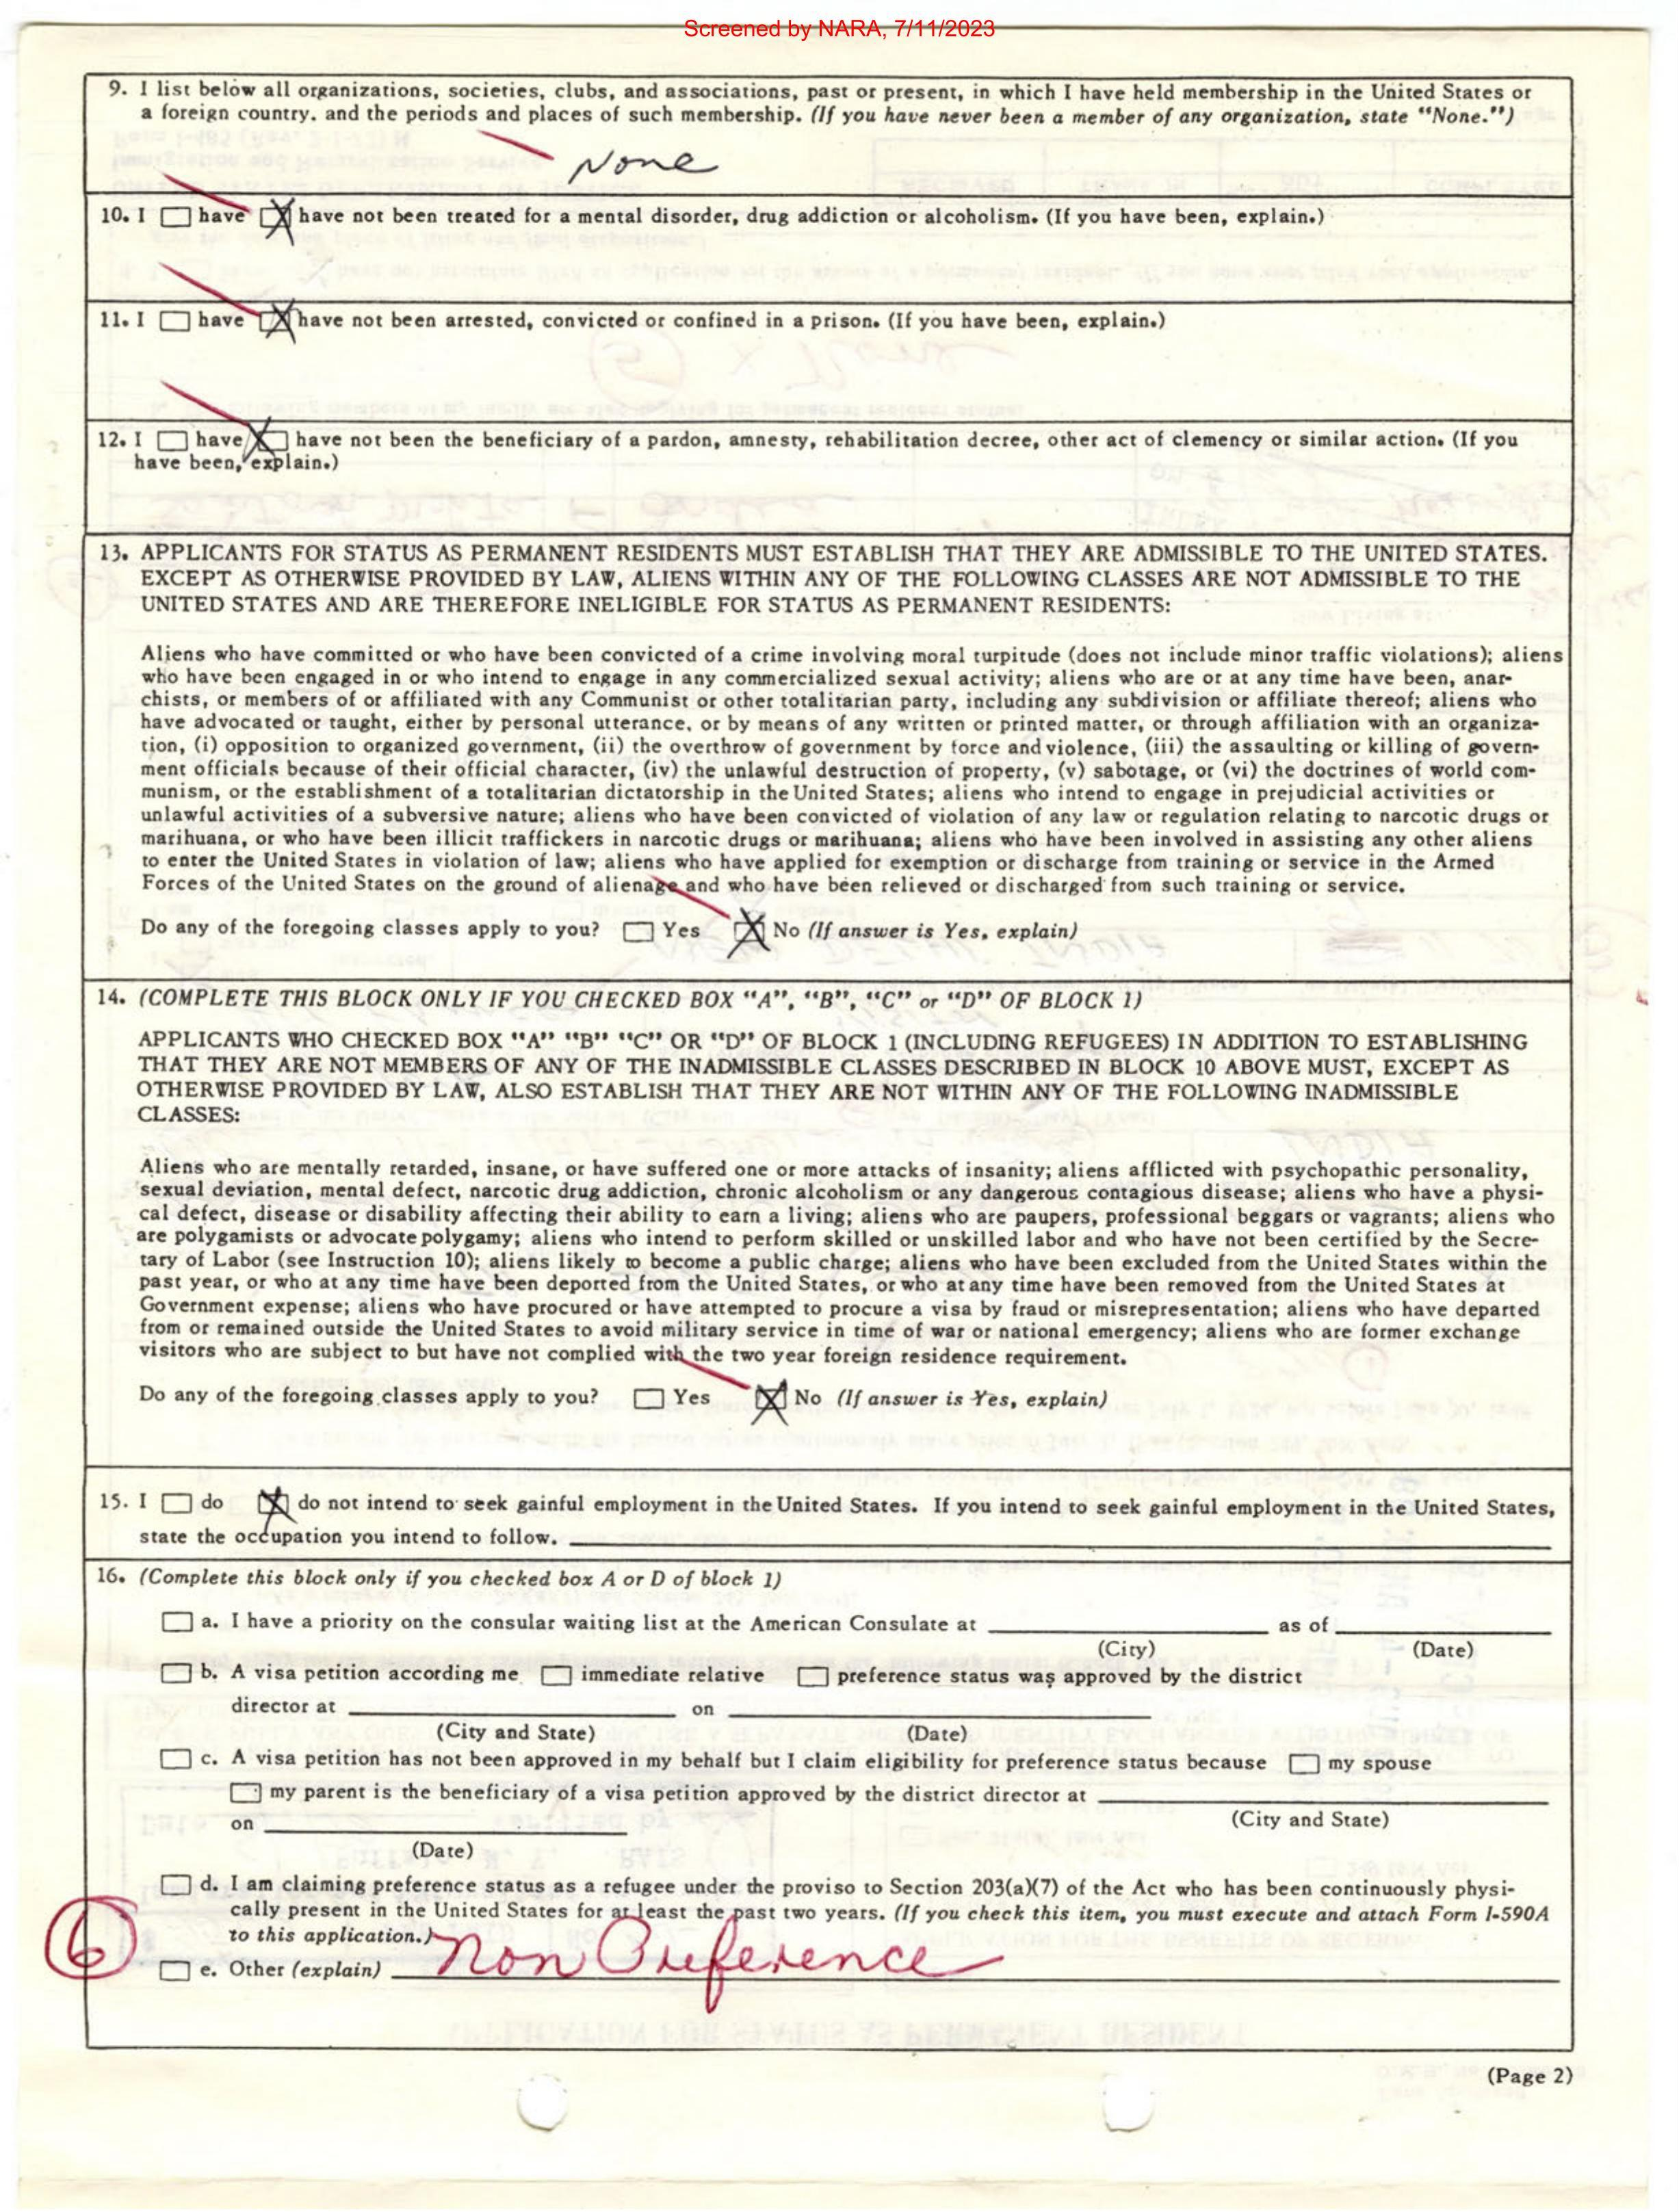 Screened by NARA, 7/11/2023
9. I list below all organizations, societies, clubs, and associations, past or present, in which I have held membership in the United States or
a foreign country. and the periods and places of such membership. (If you have never been a member of any organization, state "None.")
None
10. I ☐ have ☒ have not been treated for a mental disorder, drug addiction or alcoholism. (If you have been, explain.)
11. I ☐ have ☒ have not been arrested, convicted or confined in a prison. (If you have been, explain.)
12. I ☐ have ☒ have not been the beneficiary of a pardon, amnesty, rehabilitation decree, other act of clemency or similar action. (If you
have been, explain.)
13. APPLICANTS FOR STATUS AS PERMANENT RESIDENTS MUST ESTABLISH THAT THEY ARE ADMISSIBLE TO THE UNITED STATES.
EXCEPT AS OTHERWISE PROVIDED BY LAW, ALIENS WITHIN ANY OF THE FOLLOWING CLASSES ARE NOT ADMISSIBLE TO THE
UNITED STATES AND ARE THEREFORE INELIGIBLE FOR STATUS AS PERMANENT RESIDENTS:
Aliens who have committed or who have been convicted of a crime involving moral turpitude (does not include minor traffic violations); aliens
who have been engaged in or who intend to engage in any commercialized sexual activity; aliens who are or at any time have been, anar-
chists, or members of or affiliated with any Communist or other totalitarian party, including any subdivision or affiliate thereof; aliens who
have advocated or taught, either by personal utterance, or by means of any written or printed matter, or through affiliation with an organiza-
tion, (i) opposition to organized government, (ii) the overthrow of government by force and violence, (iii) the assaulting or killing of govern-
ment officials because of their official character, (iv) the unlawful destruction of property, (v) sabotage, or (vi) the doctrines of world com-
munism, or the establishment of a totalitarian dictatorship in the United States; aliens who intend to engage in prejudicial activities or
unlawful activities of a subversive nature; aliens who have been convicted of violation of any law or regulation relating to narcotic drugs or
marihuana, or who have been illicit traffickers in narcotic drugs or marihuana; aliens who have been involved in assisting any other aliens
to enter the United States in violation of law; aliens who have applied for exemption or discharge from training or service in the Armed
Forces of the United States on the ground of alienage and who have been relieved or discharged from such training or service.
Do any of the foregoing classes apply to you? ☐ Yes ☒ No (If answer is Yes, explain)
14. (COMPLETE THIS BLOCK ONLY IF YOU CHECKED BOX "A", "B", "C" or "D" OF BLOCK 1)
APPLICANTS WHO CHECKED BOX "A" "B" "C" OR "D" OF BLOCK 1 (INCLUDING REFUGEES) IN ADDITION TO ESTABLISHING
THAT THEY ARE NOT MEMBERS OF ANY OF THE INADMISSIBLE CLASSES DESCRIBED IN BLOCK 10 ABOVE MUST, EXCEPT AS
OTHERWISE PROVIDED BY LAW, ALSO ESTABLISH THAT THEY ARE NOT WITHIN ANY OF THE FOLLOWING INADMISSIBLE
CLASSES:
Aliens who are mentally retarded, insane, or have suffered one or more attacks of insanity; aliens afflicted with psychopathic personality,
sexual deviation, mental defect, narcotic drug addiction, chronic alcoholism or any dangerous contagious disease; aliens who have a physi-
cal defect, disease or disability affecting their ability to earn a living; aliens who are paupers, professional beggars or vagrants; aliens who
are polygamists or advocate polygamy; aliens who intend to perform skilled or unskilled labor and who have not been certified by the Secre-
tary of Labor (see Instruction 10); aliens likely to become a public charge; aliens who have been excluded from the United States within the
past year, or who at any time have been deported from the United States, or who at any time have been removed from the United States at
Government expense; aliens who have procured or have attempted to procure a visa by fraud or misrepresentation; aliens who have departed
from or remained outside the United States to avoid military service in time of war or national emergency; aliens who are former exchange
visitors who are subject to but have not complied with the two year foreign residence requirement.
Do any of the foregoing classes apply to you? ☐ Yes ☒ No (If answer is Yes, explain)
15. I ☐ do ☒ do not intend to seek gainful employment in the United States. If you intend to seek gainful employment in the United States,
state the occupation you intend to follow.
16. (Complete this block only if you checked box A or D of block 1)
☐ a. I have a priority on the consular waiting list at the American Consulate at ____ as of ____
(City) (Date)
☐ b. A visa petition according me ☐ immediate relative ☐ preference status was approved by the district
director at ____ on ____
(City and State) (Date)
☐ c. A visa petition has not been approved in my behalf but I claim eligibility for preference status because ☐ my spouse
☐ my parent is the beneficiary of a visa petition approved by the district director at ____
(City and State)
on ____
(Date)
☐ d. I am claiming preference status as a refugee under the proviso to Section 203(a)(7) of the Act who has been continuously physi-
cally present in the United States for at least the past two years. (If you check this item, you must execute and attach Form I-590A
to this application.)
6
☐ e. Other (explain) Non Preference
(Page 2)